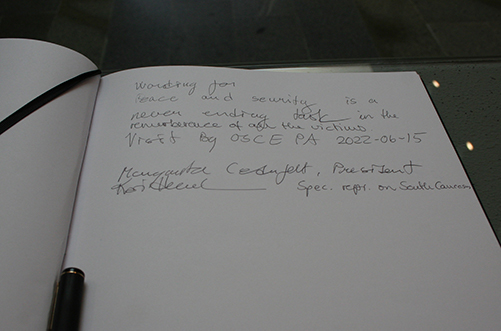 Working for
Peace and security is a
never ending task in the
rememberence of all the victims
Visit By OSCE PA 2022-06-15
Margareta Cederfelt, President
Kari Henriksen Spec. repr. on South Caucasus